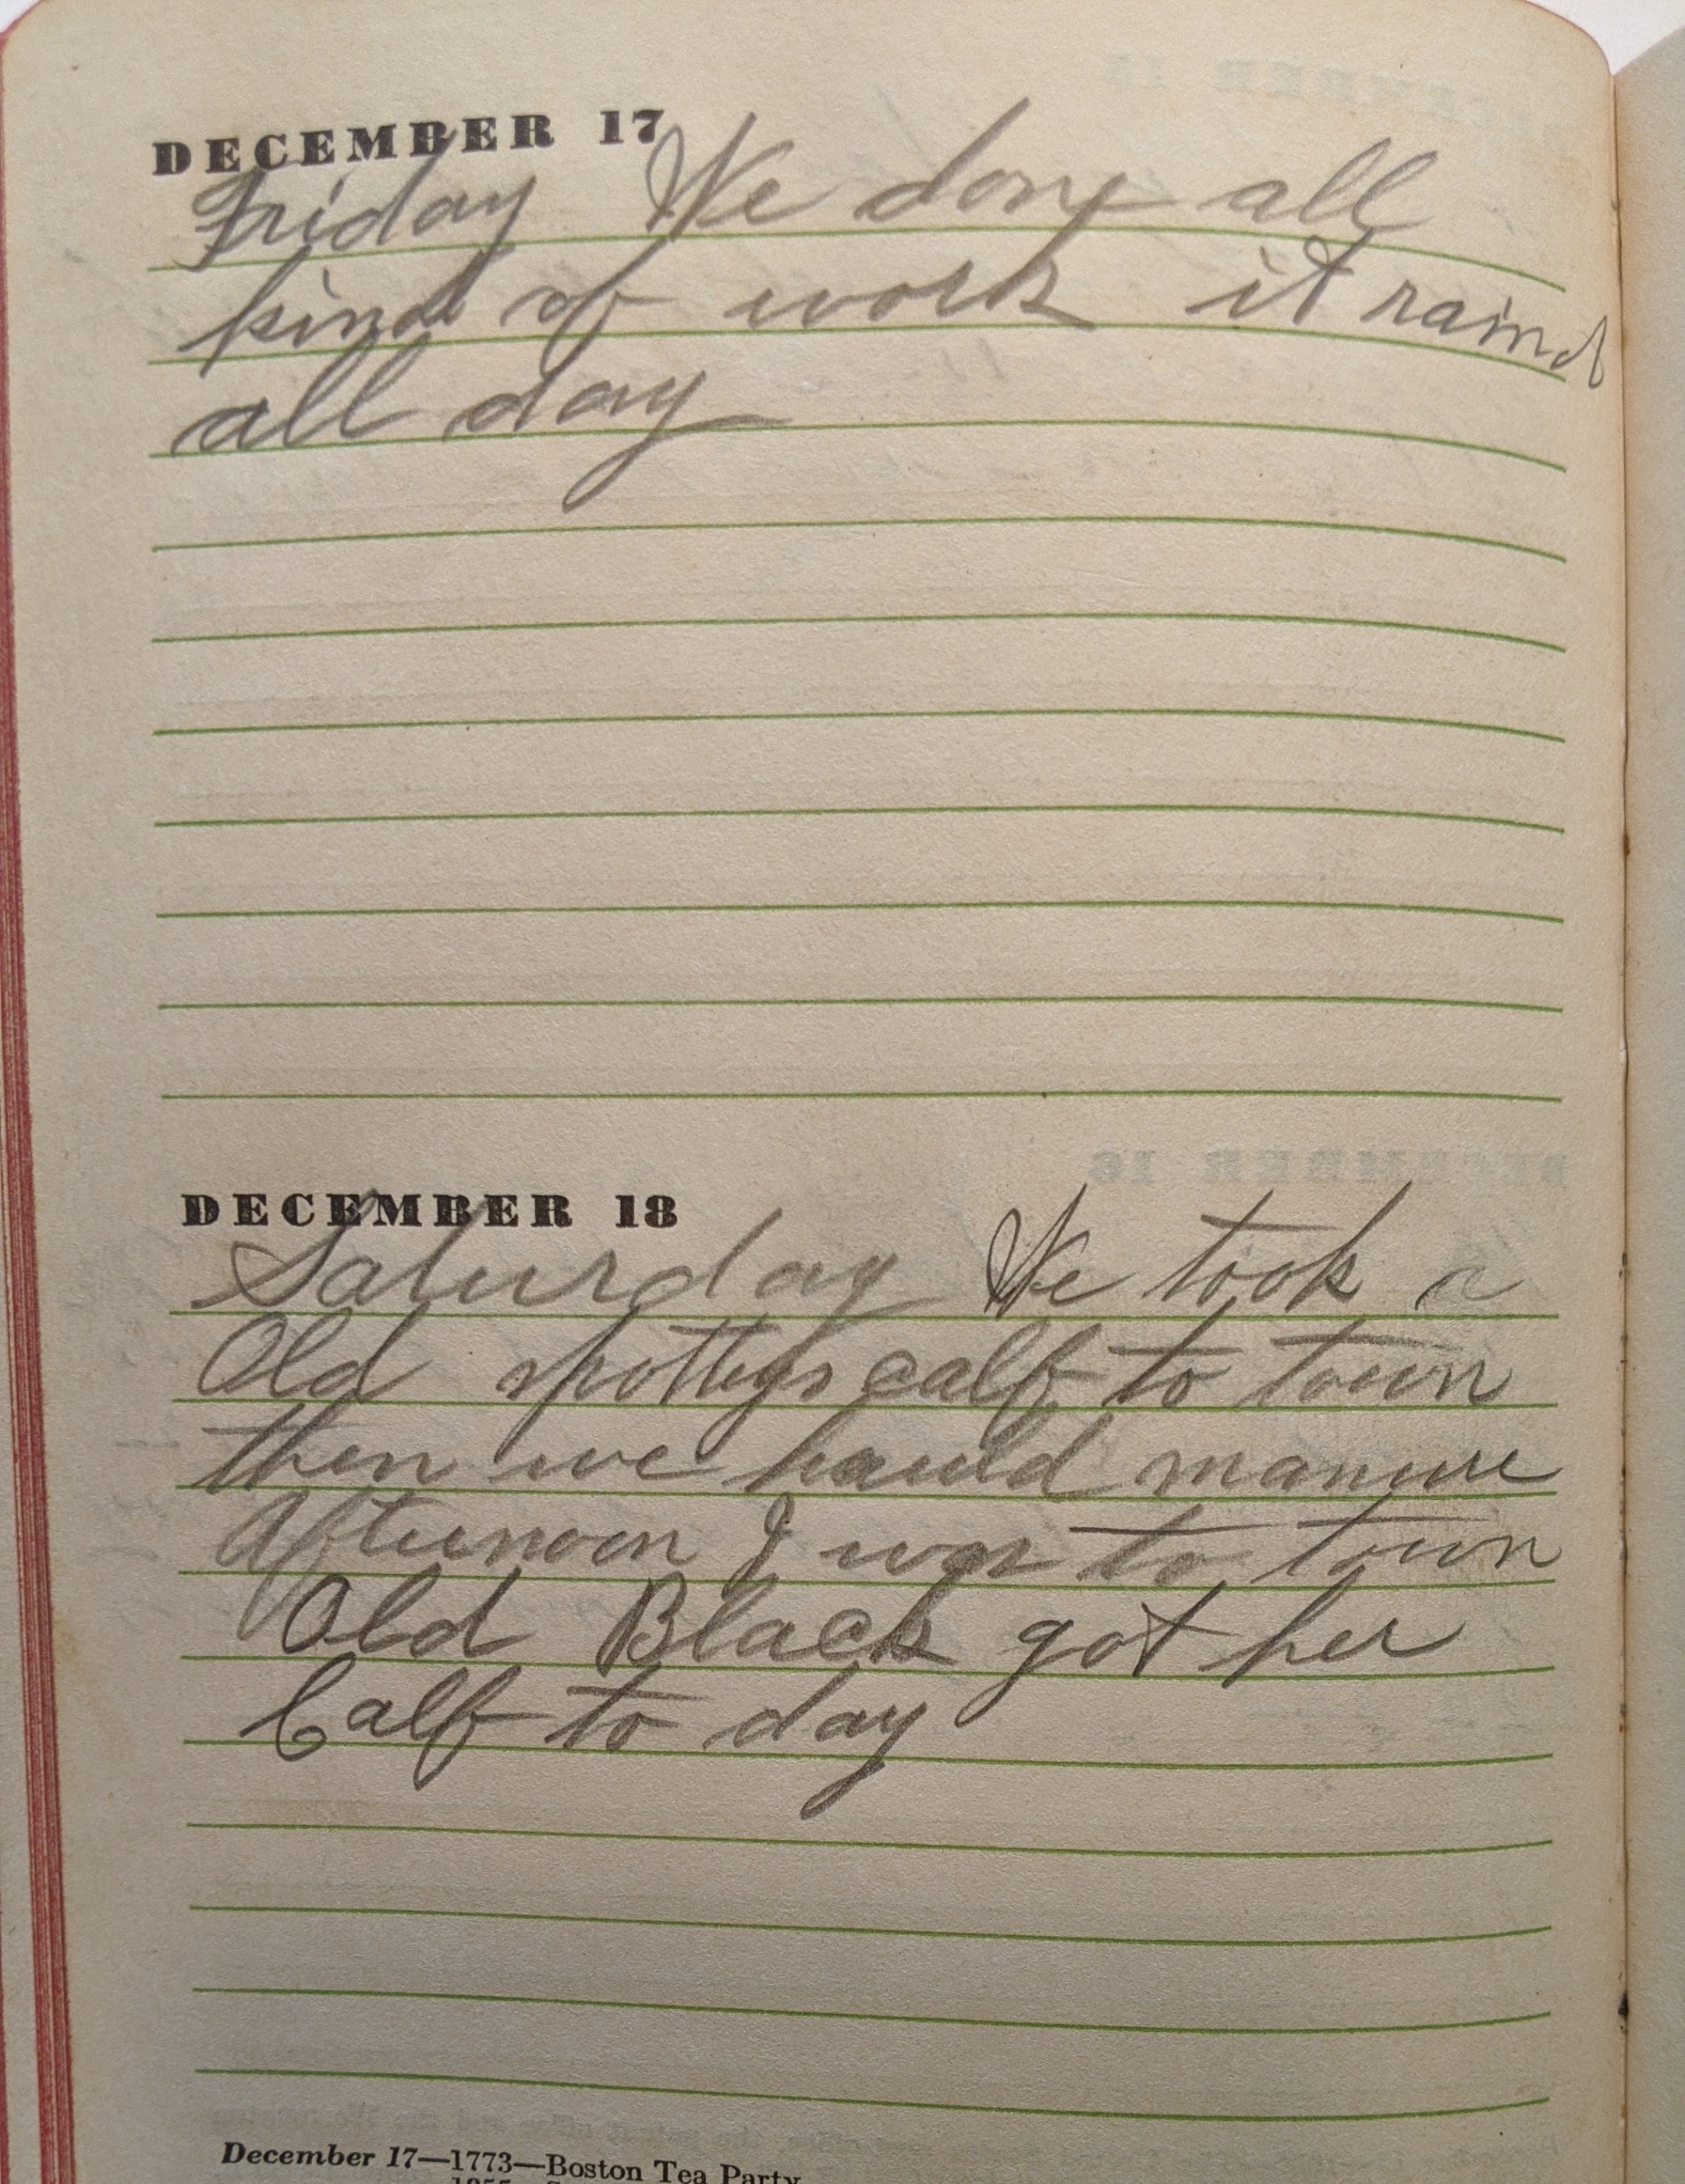 DECEMBER 17
Friday We done all
kind of work it raind
all day
DECEMBER 18
Saturday We took a
Old spottys calf to town
then we hauld manure
Afternoon I was to town
Old Black got her
Calf to day
December 17—1773—Boston Tea Party